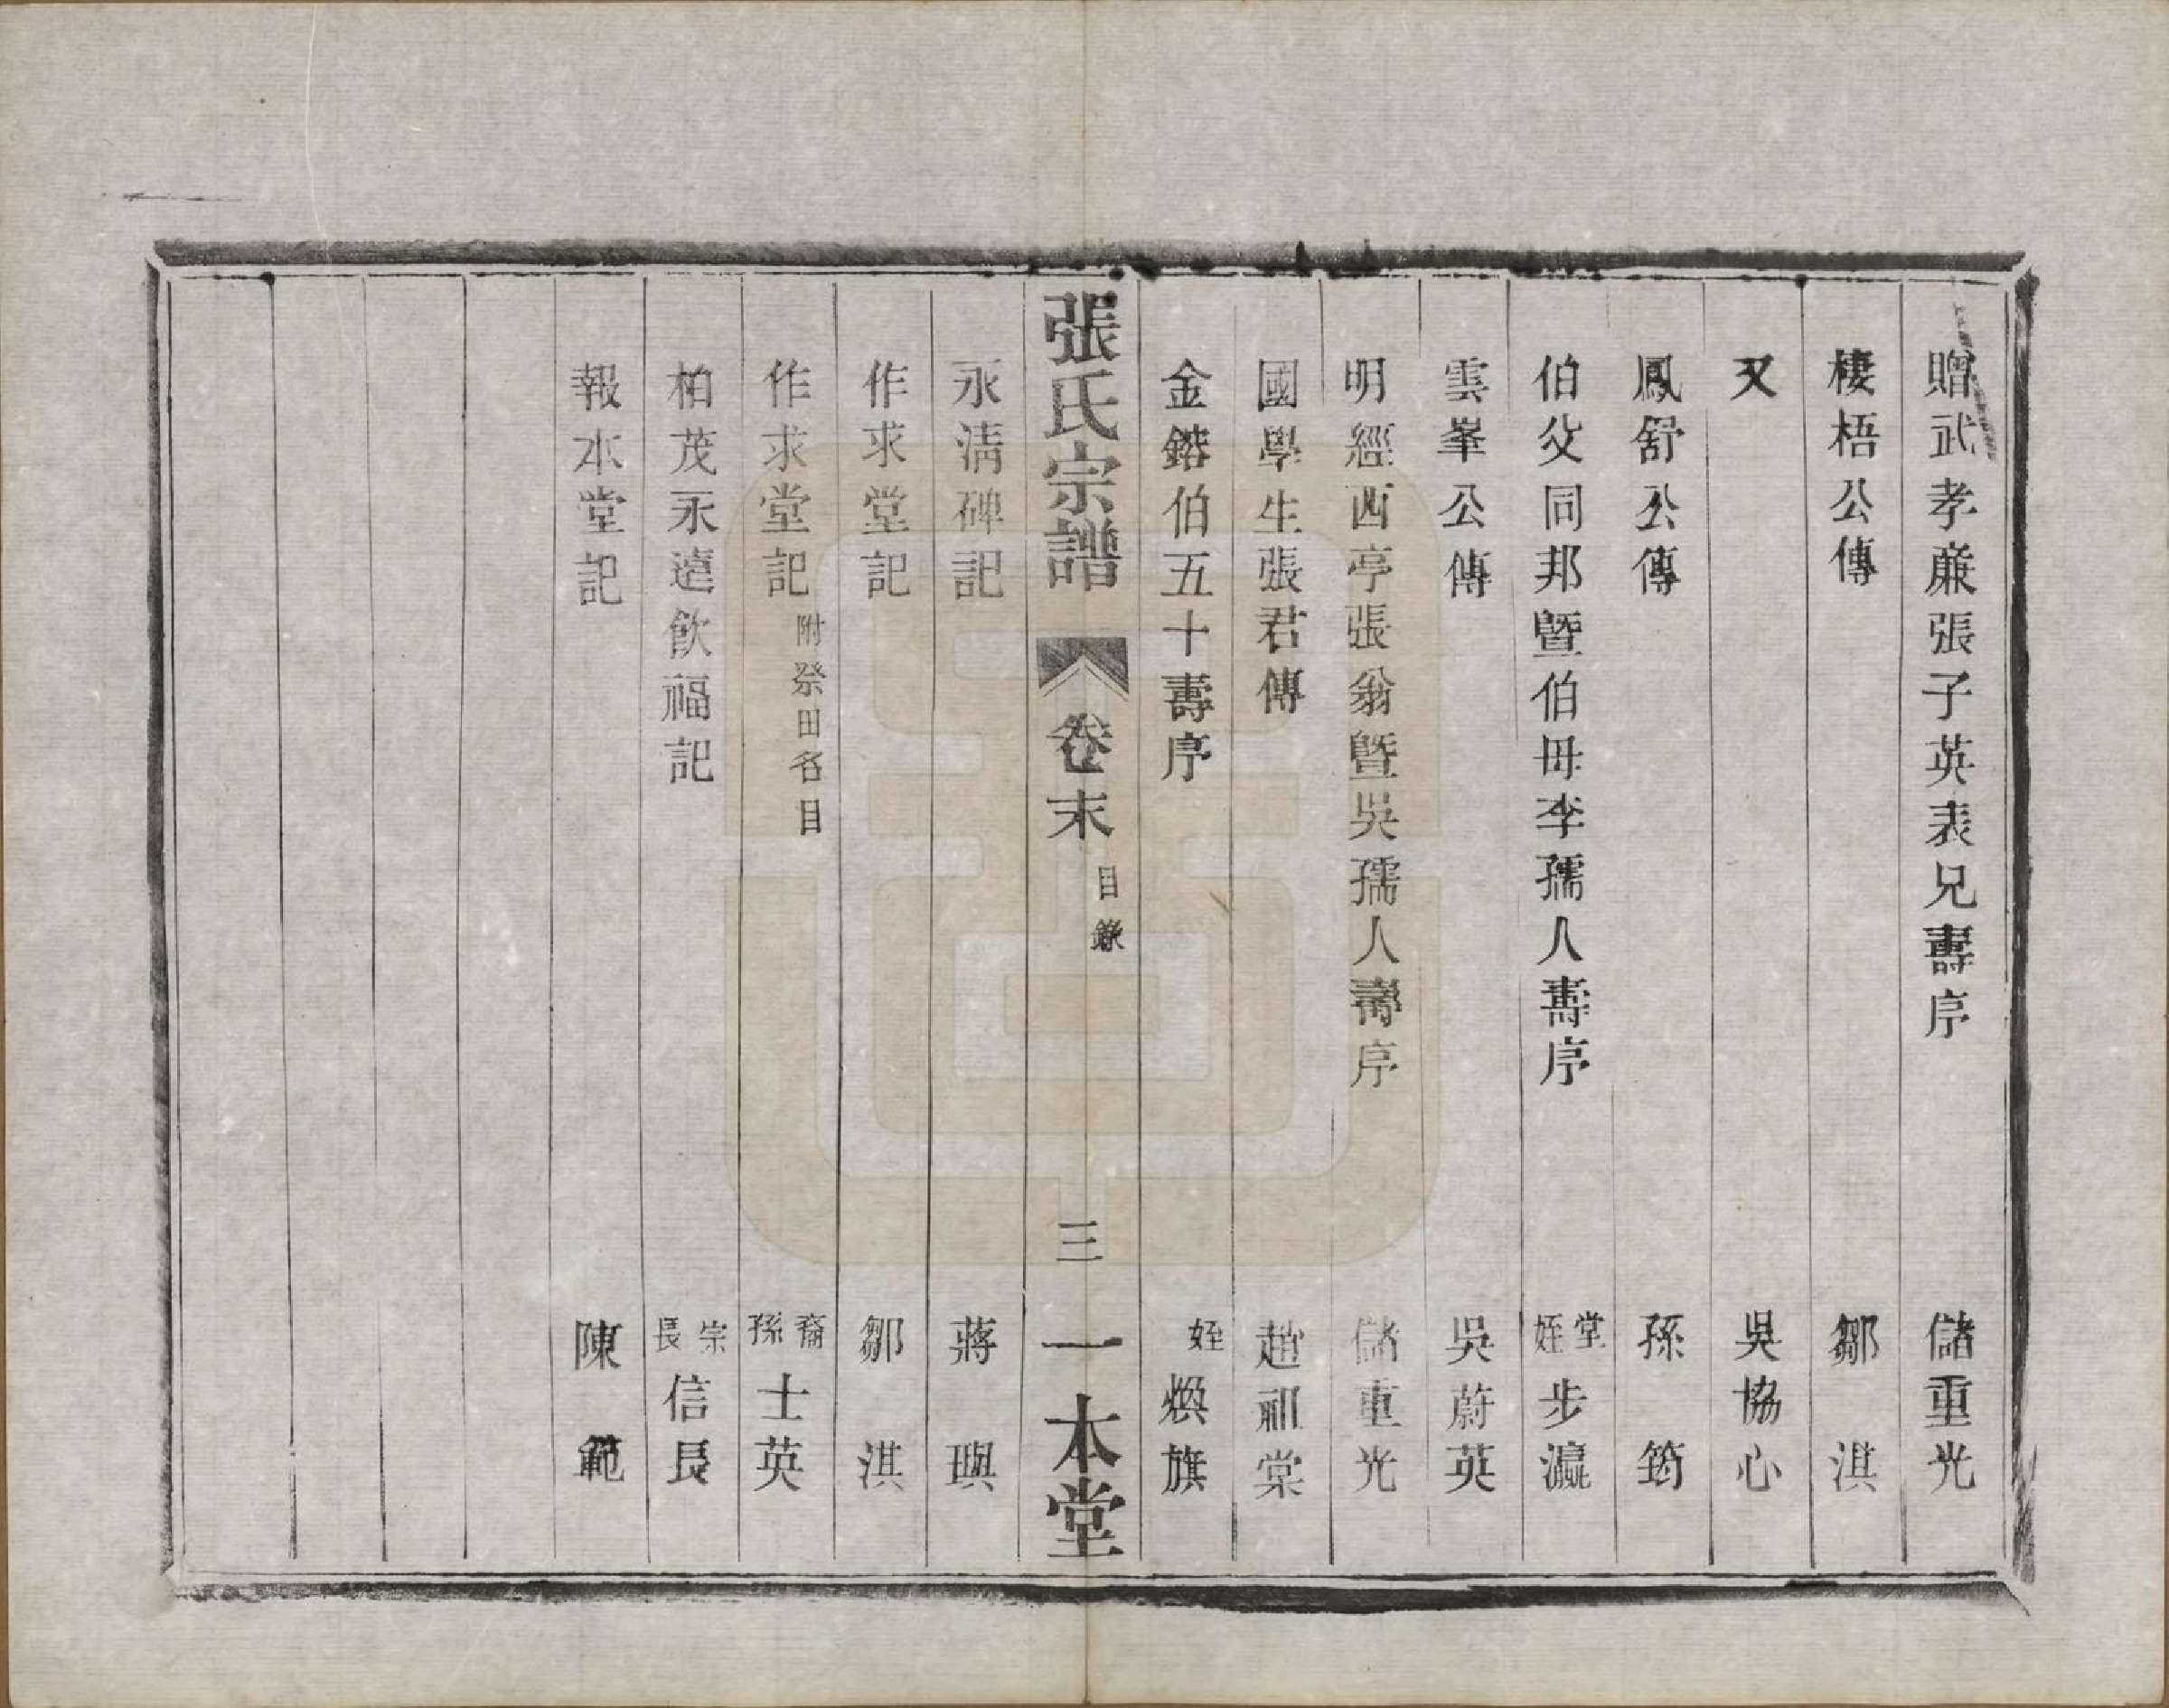 贈武孝廉張子英表兄壽序 儲重光
棲梧公傳 鄒淇
又 吳協心
鳳舒公傳 孫筠
伯父同邦暨伯母李孺人壽序 堂姪步瀛
雲峯公傳 吳蔚英
明經西亭張翁暨吳孺人壽序 儲重光
國學生張君傳 趙祖棠
金鎔伯五十壽序 姪煥旗
張氏宗譜 卷末 目錄 三 一本堂
永淸碑記 蔣璵
作求堂記 鄒淇
作求堂記 附祭田各目 裔孫士英
柏茂永遠飮福記 宗長信長
報本堂記 陳範